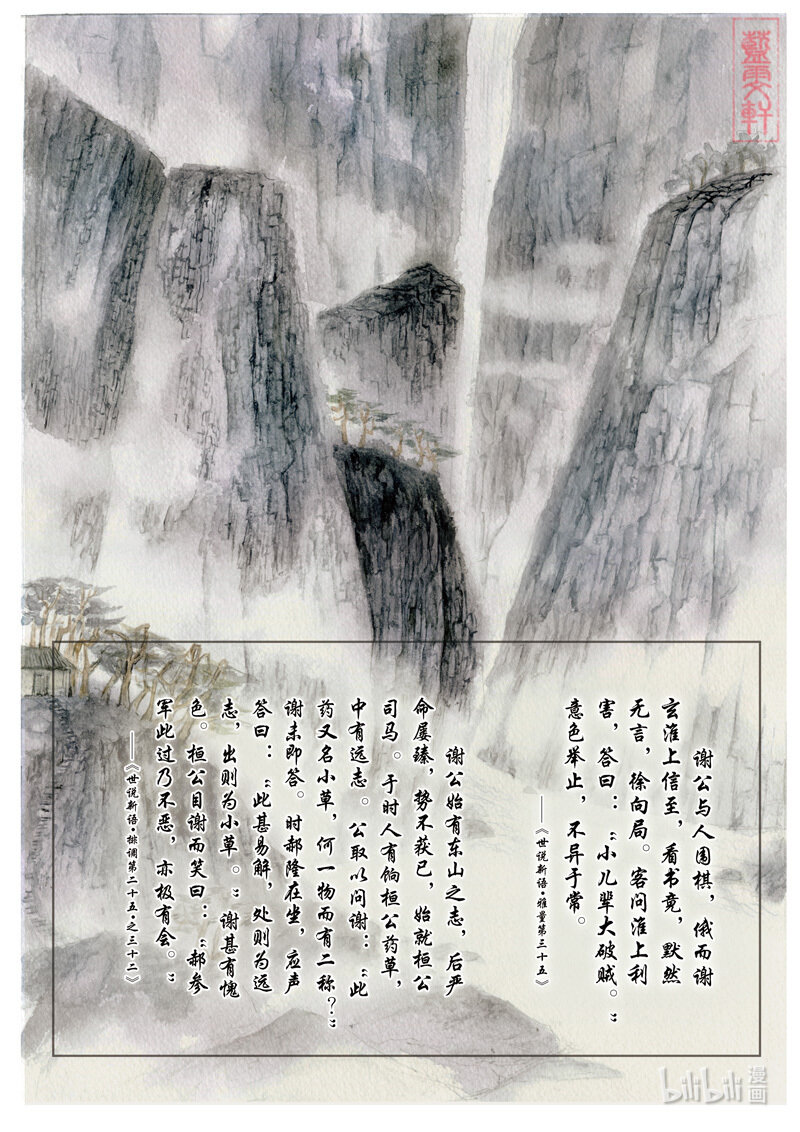 雯軒
谢公与人围棋，俄而谢
玄淮上信至，看书竟，默然
无言，徐向局。客问淮上利
害，答曰：“小儿辈大破贼。”
意色举止，不异于常。
——《世说新语·雅量第三十五》
谢公始有东山之志，后严
命屡臻，势不获已，始就桓公
司马。于时人有饷桓公药草，
中有远志。公取以问谢：“此
药又名小草，何一物而有二称？”
谢未即答。时郝隆在坐，应声
答曰：“此甚易解，处则为远
志，出则为小草。”谢甚有愧
色。桓公目谢而笑曰：“郝参
军此过乃不恶，亦极有会。”
——《世说新语·排调第二十五·之三十二》
bilibili 漫画